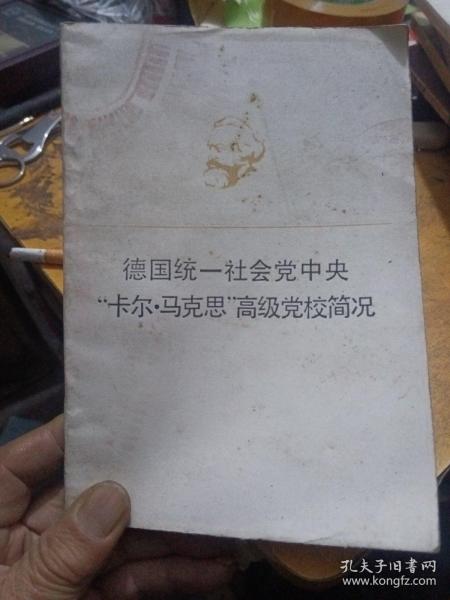 德国统一社会党中央
“卡尔·马克思”高级党校简况
孔夫子旧书网
www.kongfz.com